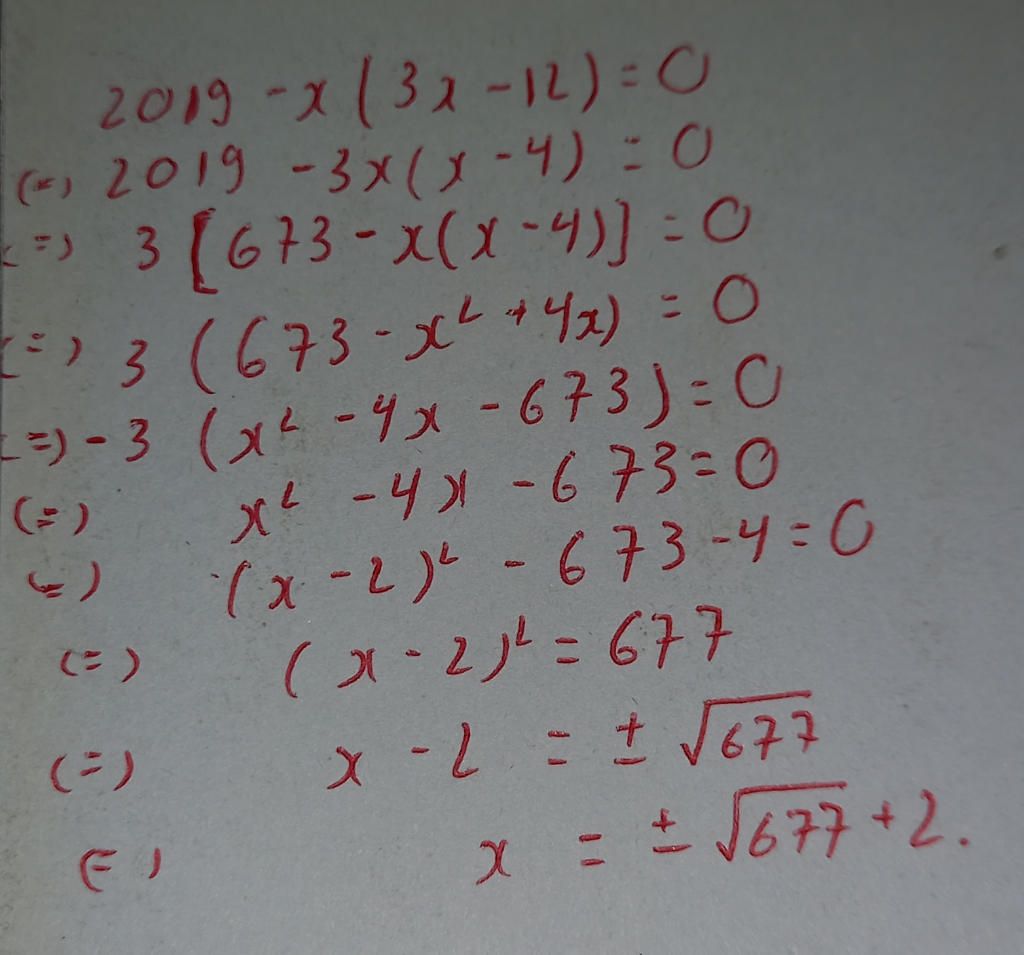 2019 -x(3x-12)=0
(=) 2019 -3x(x-4) = 0
(=) 3 [673-x(x-4)] =0
(=) 3 (673-x²+4x) = 0
(=) -3 (x²-4x-673)=0
(=) x²-4x-673=0
(=) (x-2)²-673-4=0
(=) (x-2)²=677
(=) x-2 = ±√677
(=) x = ±√677+2.